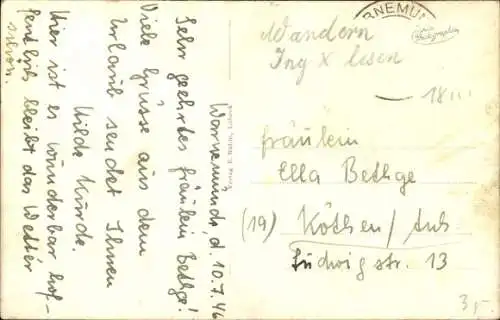 Warnemünde, d. 10.7.46
Sehr geehrtes Fräulein Bethge!
Viele Grüsse aus dem
Urlaub sendet Ihnen
Hilde Kurde.
Hier ist es wunderbar hof-
fentlich bleibt das Wetter
schön.
RNEMÜ
Wandern
Ing x lesen
18
Fräulein
Ella Bethge
(19) Köthen/Anh
Ludwigstr. 13
3,-